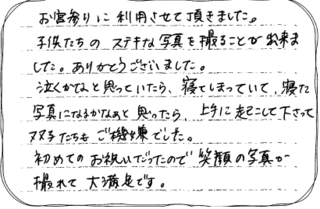 お宮参りに利用させて頂きました。
子供たちのステキな写真を撮ることが出来ま
した。ありがとうございました。
泣くかなと思っていたら、寝てしまっていて、寝た
写真になるかなぁと思ったら、上手に起こして下さって
ママ子たちもご機嫌でした。
初めてのお祝いだったので笑顔の写真が
撮れて大満足です。